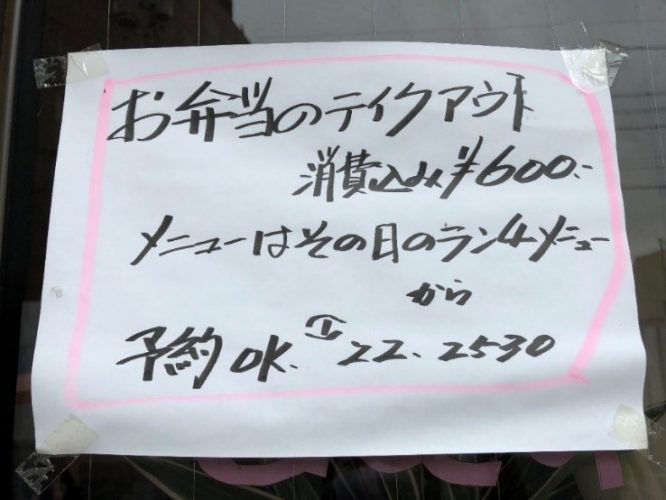 お弁当のテイクアウト
消費込み¥600.-
メニューはその日のランチメニュー
から
予約OK. ☎ 22.2530